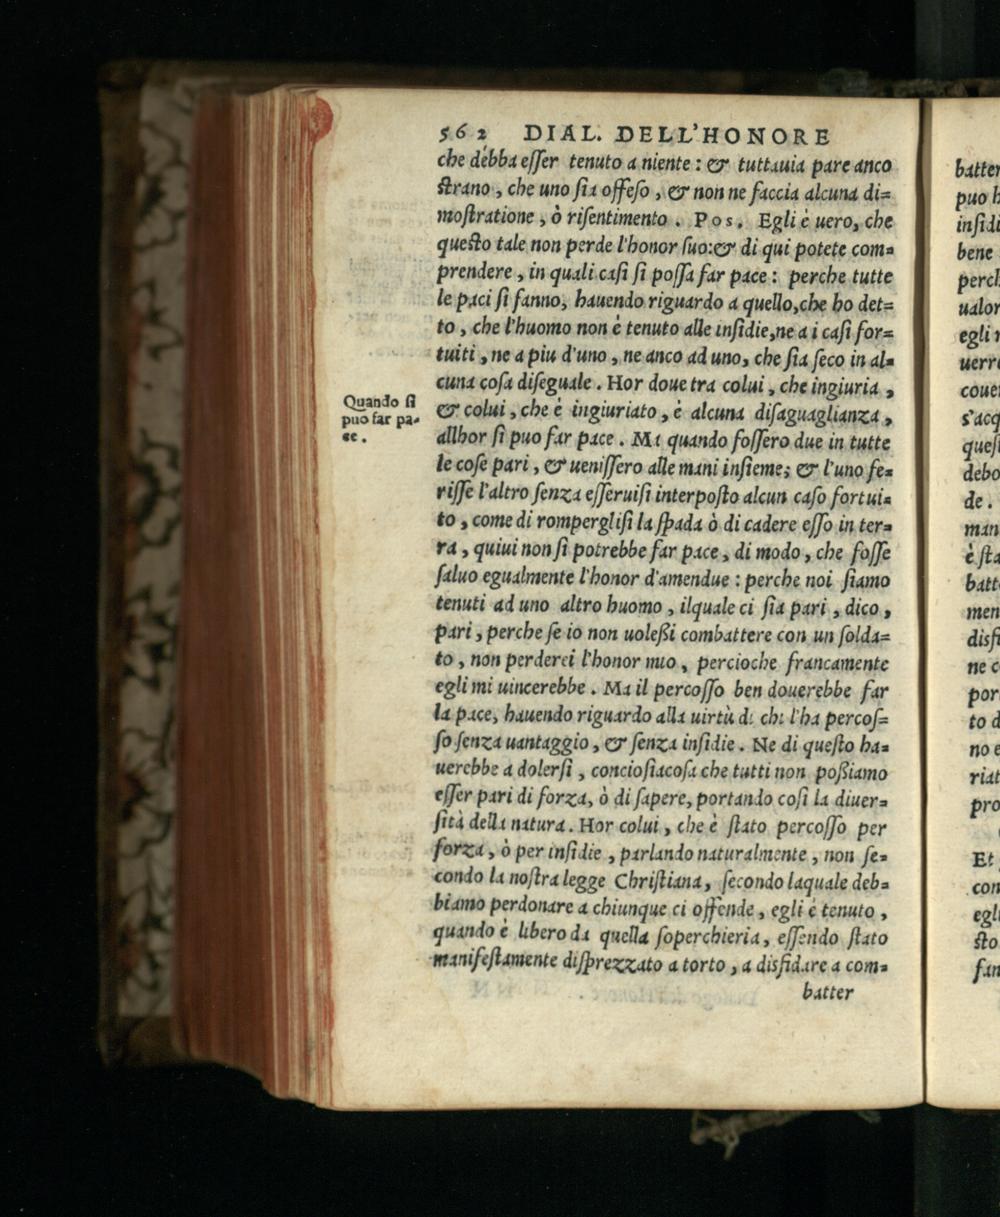 562 DIAL. DELL'HONORE
che debba eſſer tenuto a niente : & tuttauia pare anco
ſtrano , che uno ſia offeſo , & non ne faccia alcuna di=
moſtratione , ò riſentimento . Pos. Egli è uero, che
queſto tale non perde l'honor ſuo:& di qui potete com=
prendere , in quali caſi ſi poſſa far pace : perche tutte
le paci ſi fanno, hauendo riguardo a quello,che ho det=
to , che l'huomo non è tenuto alle inſidie,ne a i caſi for=
tuiti , ne a piu d'uno , ne anco ad uno, che ſia ſeco in al=
cuna coſa diſeguale . Hor doue tra colui , che ingiuria ,
& colui , che è ingiuriato , è alcuna diſaguaglianza ,
allhor ſi puo far pace . Ma quando foſſero due in tutte
le coſe pari , & ueniſſero alle mani inſieme; & l'uno fe=
riſſe l'altro ſenza eſſeruiſi interpoſto alcun caſo fortui=
to , come di rompergliſi la ſpada ò di cadere eſſo in ter=
ra , quiui non ſi potrebbe far pace , di modo , che foſſe
ſaluo egualmente l'honor d'amendue : perche noi ſiamo
tenuti ad uno altro huomo , ilquale ci ſia pari , dico ,
pari , perche ſe io non uoleßi combattere con un ſolda=
to , non perderei l'honor mio , percioche francamente
egli mi uincerebbe . Ma il percoſſo ben douerebbe far
la pace, hauendo riguardo alla uirtù di chi l'ha percoſ=
ſo ſenza uantaggio , & ſenza inſidie . Ne di queſto ha=
uerebbe a dolerſi , concioſiacoſa che tutti non poßiamo
eſſer pari di forza, ò di ſapere, portando coſi la diuer=
ſità della natura . Hor colui , che è ſtato percoſſo per
forza , ò per inſidie , parlando naturalmente , non ſe=
condo la noſtra legge Chriſtiana , ſecondo laquale deb=
biamo perdonare a chiunque ci offende , egli è tenuto ,
quando è libero da quella ſoperchieria , eſſendo ſtato
manifeſtamente diſprezzato a torto , a disfidare a com=
batter
Quando ſi
puo far pa-
ce .
batter
puo h
inſidi
bene
perch
ualor
egli
uerre
couer
s'acq
queſt
debo
de .
man
è ſta
batt
men
disfi
ne c
por
to d
no e
riat
pro
Et
con
egli
ſto
fan